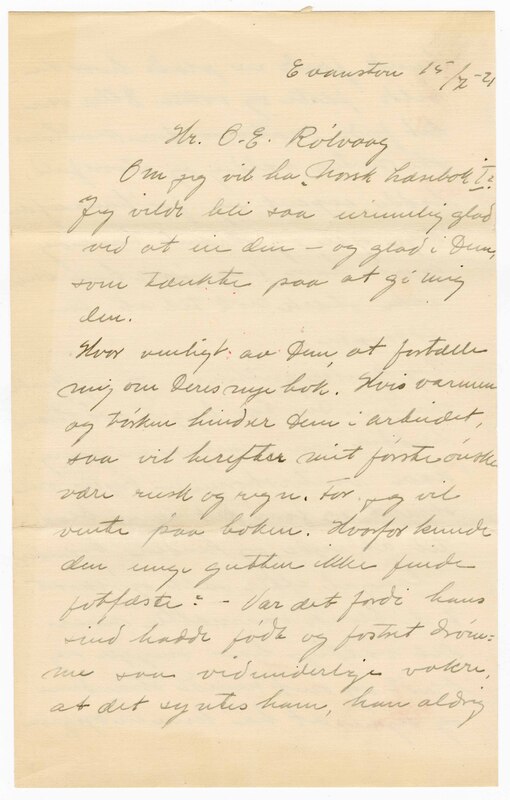 Evanston 15/7-21
Hr. O. E. Rölvaag
Om jeg vil ha "Norsk Læsebok I"?
Jeg vilde bli saa urimelig glad
ved at eie den – og glad i Dem,
som tænkte paa at gi mig
den.
Hvor venligt av Dem, at fortælle
mig om Deres nye bok. Hvis varmen
og törken hindrer Dem i arbeidet,
saa vil herefter mit förste önske
være rusk og regn. For jeg vil
vente paa boken. Hvorfor kunde
den unge gutten ikke finde
fotfæste? – Var det fordi hans
sind hadde födt og fostret dröm=
me saa vidunderlige vakre,
at det syntes ham, han aldrig